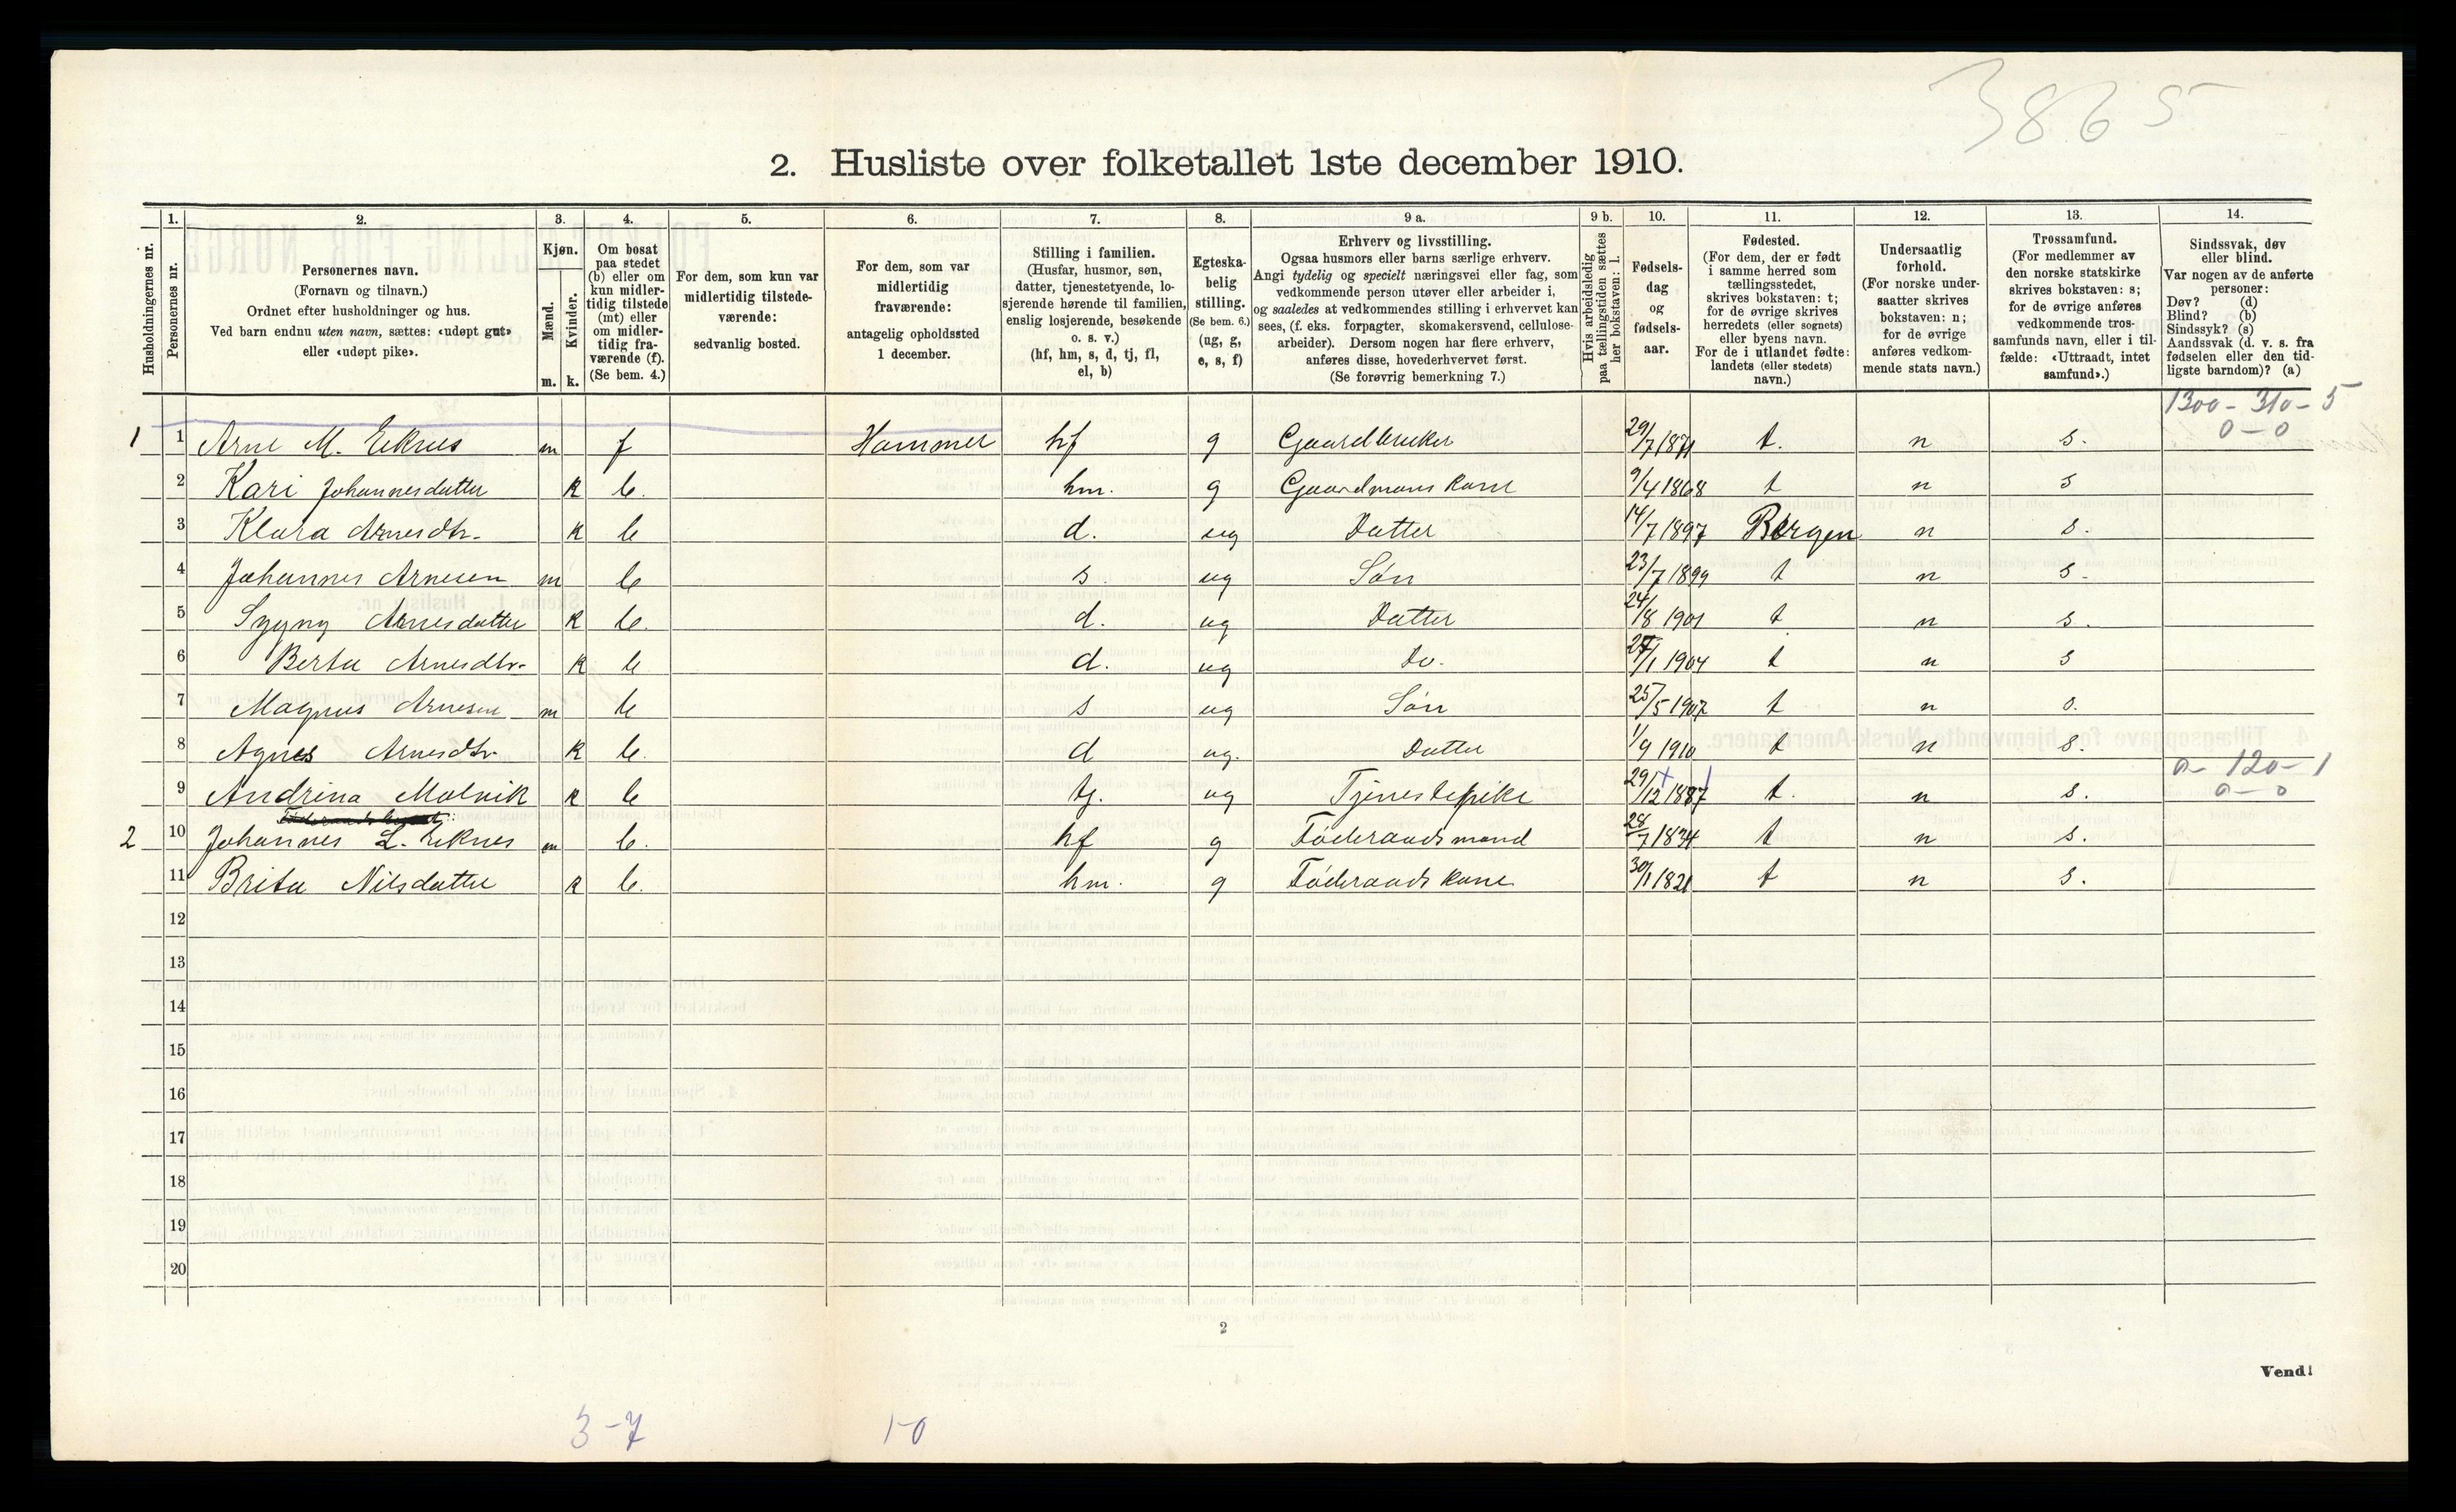 3865
2. Husliste over folketallet 1ste december 1910.
Husholdningernes nr.
1. Personernes nr.
2. Personernes navn. (Fornavn og tilnavn.) Ordnet efter husholdninger og hus. Ved barn endnu uten navn, sættes: «udøpt gut» eller «udøpt pike».
3. Kjøn. Mænd. m. Kvinder. k.
4. Om bosat paa stedet (b) eller om kun midlertidig tilstede (mt) eller om midlertidig fraværende (f). (Se bem. 4.)
5. For dem, som kun var midlertidig tilstedeværende: sedvanlig bosted.
6. For dem, som var midlertidig fraværende: antagelig opholdssted 1 december.
7. Stilling i familien. (Husfar, husmor, søn, datter, tjenestetyende, losjerende hørende til familien, enslig losjerende, besøkende o. s. v.) (hf, hm, s, d, tj, fl, el, b)
8. Egteskabelig stilling. (Se bem. 6.) (ug, g, e, s, f)
9 a. Erhverv og livsstilling. Ogsaa husmors eller barns særlige erhverv. Angi tydelig og specielt næringsvei eller fag, som vedkommende person utøver eller arbeider i, og saaledes at vedkommendes stilling i erhvervet kan sees, (f. eks. forpagter, skomakersvend, cellulosearbeider). Dersom nogen har flere erhverv, anføres disse, hovederhvervet først. (Se forøvrig bemerkning 7.)
9 b. Hvis arbeidsledig paa tællingstiden sættes her bokstaven: l.
10. Fødselsdag og fødselsaar.
11. Fødested. (For dem, der er født i samme herred som tællingsstedet, skrives bokstaven: t; for de øvrige skrives herredets (eller sognets) eller byens navn. For de i utlandet fødte: landets (eller stedets) navn.)
12. Undersaatlig forhold. (For norske undersaatter skrives bokstaven: n; for de øvrige anføres vedkommende stats navn.)
13. Trossamfund. (For medlemmer av den norske statskirke skrives bokstaven: s; for de øvrige anføres vedkommende trossamfunds navn, eller i tilfælde: «Uttraadt, intet samfund».)
14. Sindssvak, døv eller blind. Var nogen av de anførte personer: Døv? (d) Blind? (b) Sindssyk? (s) Aandssvak (d. v. s. fra fødselen eller den tidligste barndom)? (a)
1300 - 310 - 5
0 - 0
1 1 Arne M. Eknes m f Hammer hf g Gaardbruker 29/7 1871 t. n s.
2 Kari Johannesdatter k b. hm. g Gaardmans kone 9/4 1868 t n s
3 Klara Arnesdtr. k b d. ug Datter 14/7 1897 Bergen n s.
4 Johannes Arnesen m b s. ug Søn 23/7 1899 t n s.
5 Sygny Arnesdatter k b. d. ug Datter 24/8 1901 t n s.
6 Berta Arnesdtr. k b d. ug Do. 27/1 1904 t n s
7 Magnus Arnesen m b s ug Søn 25/5 1907 t n s.
8 Agnes Arnesdtr. k b. d ug. Datter 1/9 1910 t n s.
0 - 120 - 1
0 - 0
9 Andrina Molvik k b tj. ug Tjenestepike 29/12 1887 t. n s.
2 10 Johannes L. Eknes m b. hf g Føderaadsmand 28/7 1834 t n s.
11 Brita Nilsdatter k b. hm. g Føderaadskone 30/1 1821 t n s.
12
13
14
15
16
17
18
19
20
2
Vend!
3-7 1-0